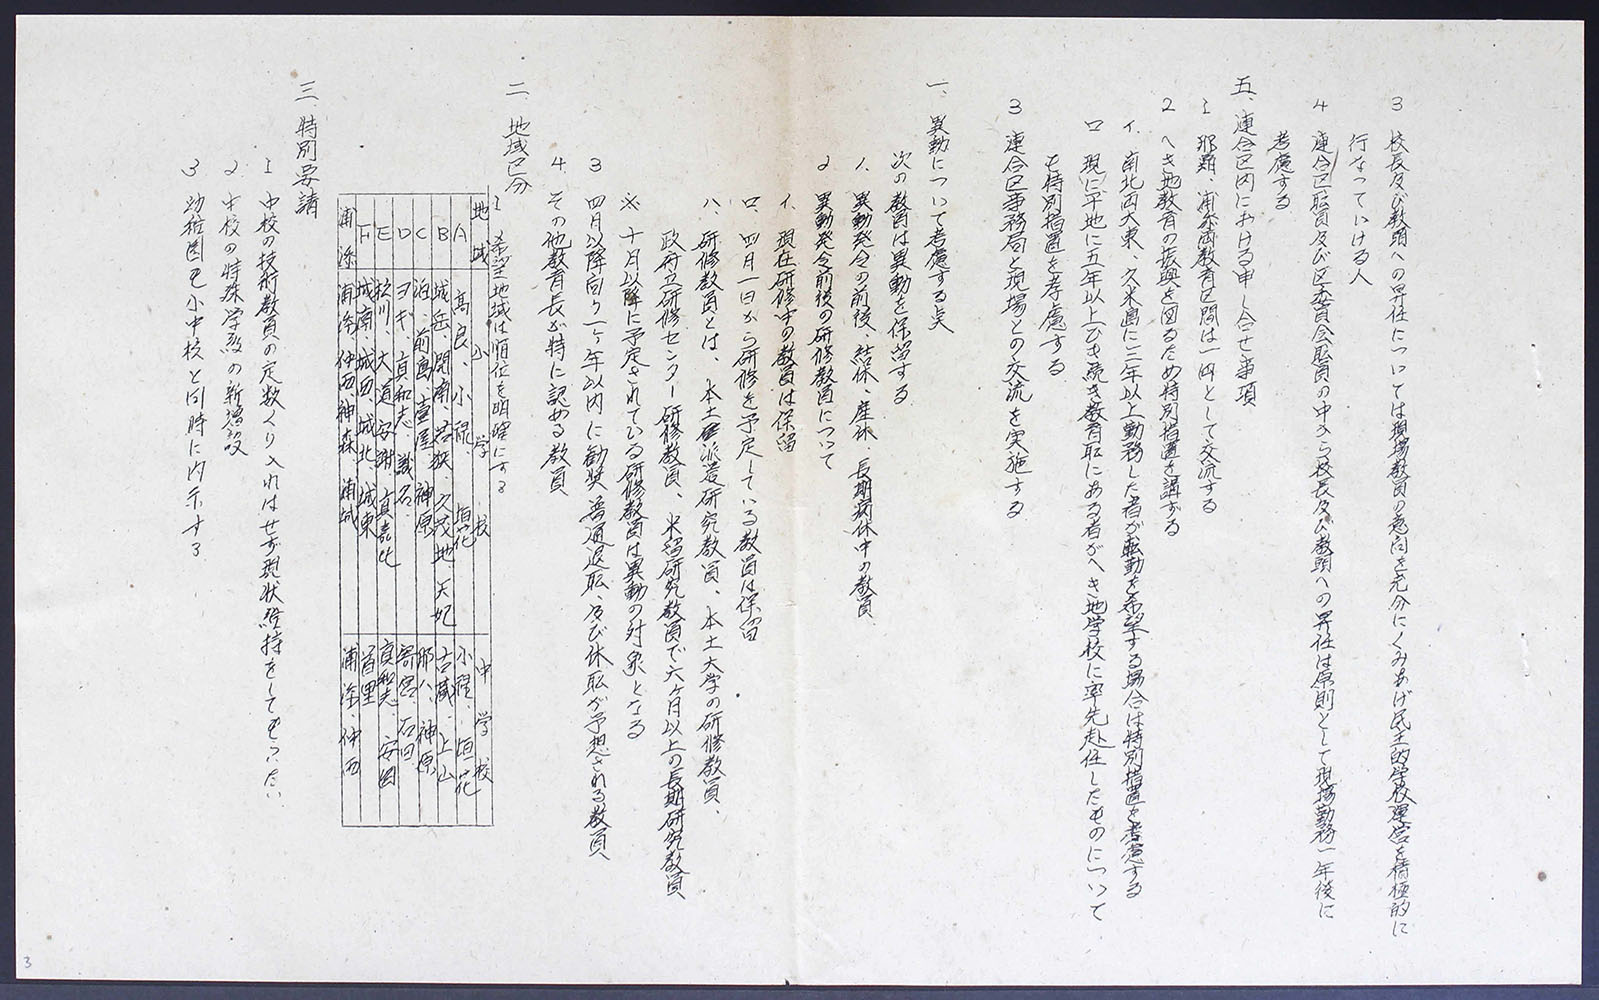 3 校長及び教頭への昇任については現場教員の意向を充分にくみあげ民主的学校運営を積極的に
行なっていける人
4 連合区職員及び区委員会職員の中から校長及び教頭への昇任は原則として現場勤務一年後に
考慮する
五、連合区内における申し合せ事項
1 那覇、浦添両教育区間は一円として交流する
2 へき地教育の振興を図るため特別措置を講ずる
イ、南北両大東、久米島に三年以上勤務した者が転勤を希望する場合は特別措置を考慮する
ロ 現に平地に五年以上ひき続き教育職にある者がへき地学校に率先赴任したものについて
も特別措置を考慮する
3 連合区事務局と現場との交流を実施する
一、異動について考慮する点
次の教員は異動を保留する
1、異動発令の前後、結休、産休、長期病休中の教員
2 異動発令前後の研修教員について
イ、現在研修中の教員は保留
ロ、四月一日から研修を予定している教員は保留
ハ、研修教員とは、本土派遣研究教員、本土大学の研修教員、
政府立研修センター研修教員、米留研究教員で六ヶ月以上の長期研究教員
※ 十月以降に予定されている研修教員は異動の対象となる
3 四月以降向う一ヶ年以内に勧奨、普通退職、及び休職が予想される教員
4. その他教育長が特に認める教員
二、地域区分
1 希望地域は順位を明確にする
地域 小学校 中学校
A 高良、小禄、垣花 小禄、垣花
B 城岳、開南、若狭、久茂地、天妃 古蔵、上山
C 泊、前島、壺屋、神原 那八、神原
D ヨギ、真和志、識名 寄宮、石田
E 松川、大道、安謝、真嘉比 真和志、安岡
F 城南、城西、城北、城東 首里
浦添 浦添、仲西、神森、浦城 浦添、仲西
三、特別要請
1 中校の技術教員の定数くり入れはせず現状維持をしてもらいたい
2. 中校の特殊学級の新増設
3 幼稚園も小中校と同時に内示する
3